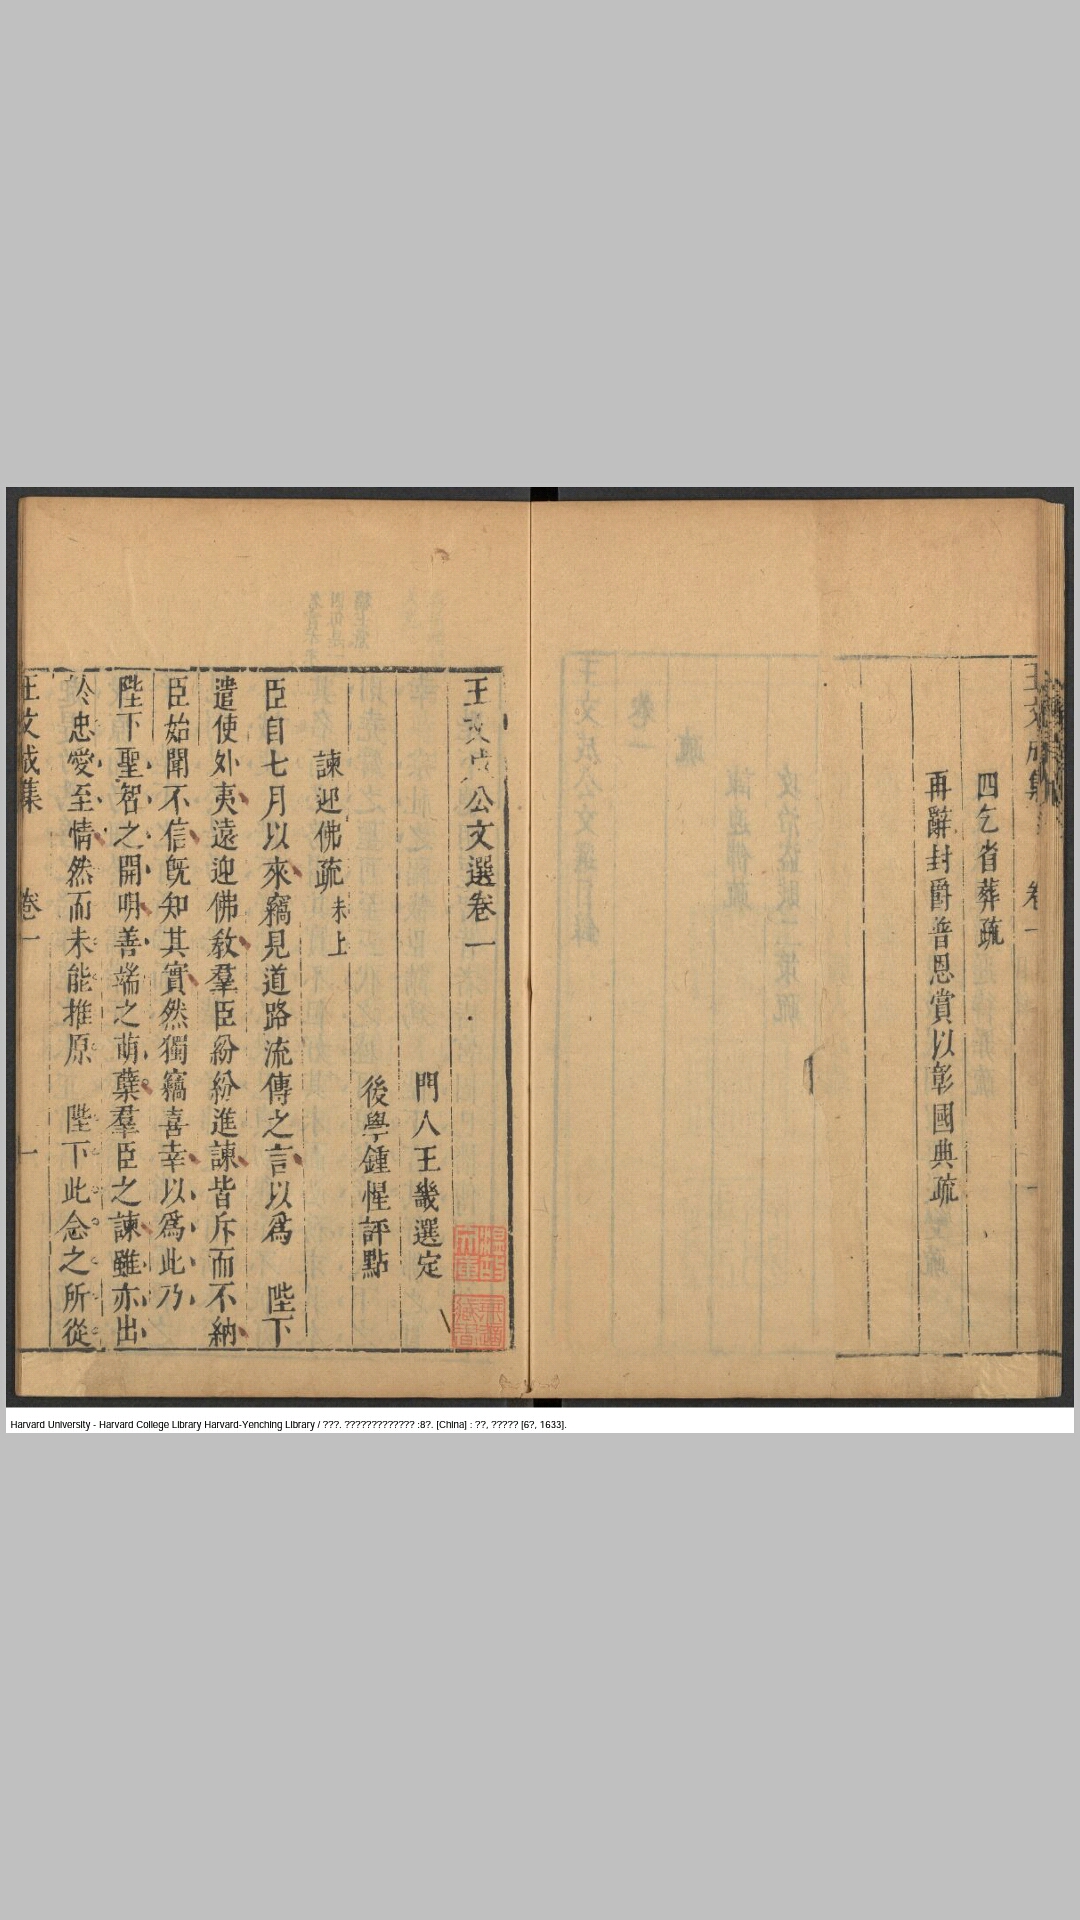 王文成集 卷一 一
四乞省葬疏
再辭封爵普恩賞以彰國典疏
王文成公文選卷一
門人王畿選定
後學鍾惺評點
諫迎佛疏未上
臣自七月以來竊見道路流傳之言以爲 陛下
遣使外夷遠迎佛教羣臣紛紛進諫皆斥而不納
臣始聞不信旣知其實然獨竊喜幸以爲此乃
陛下聖智之開明善端之萌蘖羣臣之諫雖亦出
於忠愛至情然而未能推原 陛下此念之所從
王文成集 卷一 一
Harvard University - Harvard College Library Harvard-Yenching Library / ???. ????????????? :8?. [China] : ??, ????? [6?, 1633].